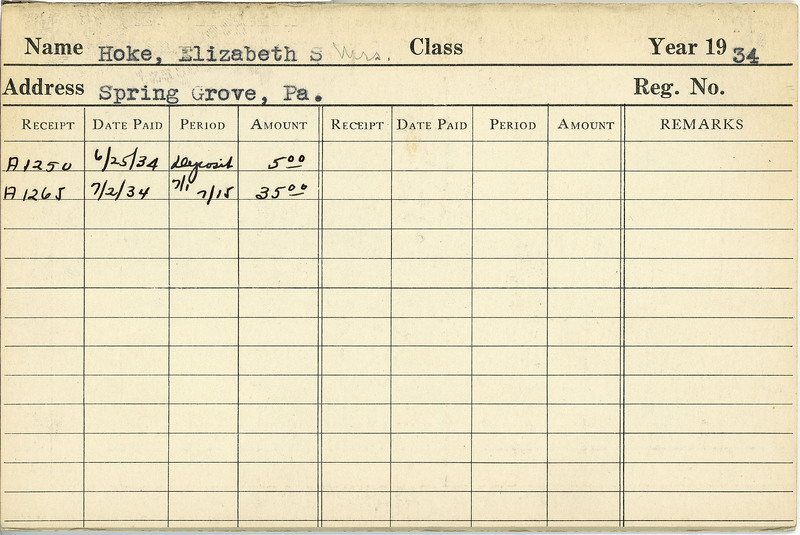 Name Hoke, Elizabeth S Mrs. Class Year 1934
Address Spring Grove, Pa. Reg. No.
RECEIPT DATE PAID PERIOD AMOUNT RECEIPT DATE PAID PERIOD AMOUNT REMARKS
A1250 6/25/34 deposit 500
A1265 7/2/34 7/1 7/15 3500